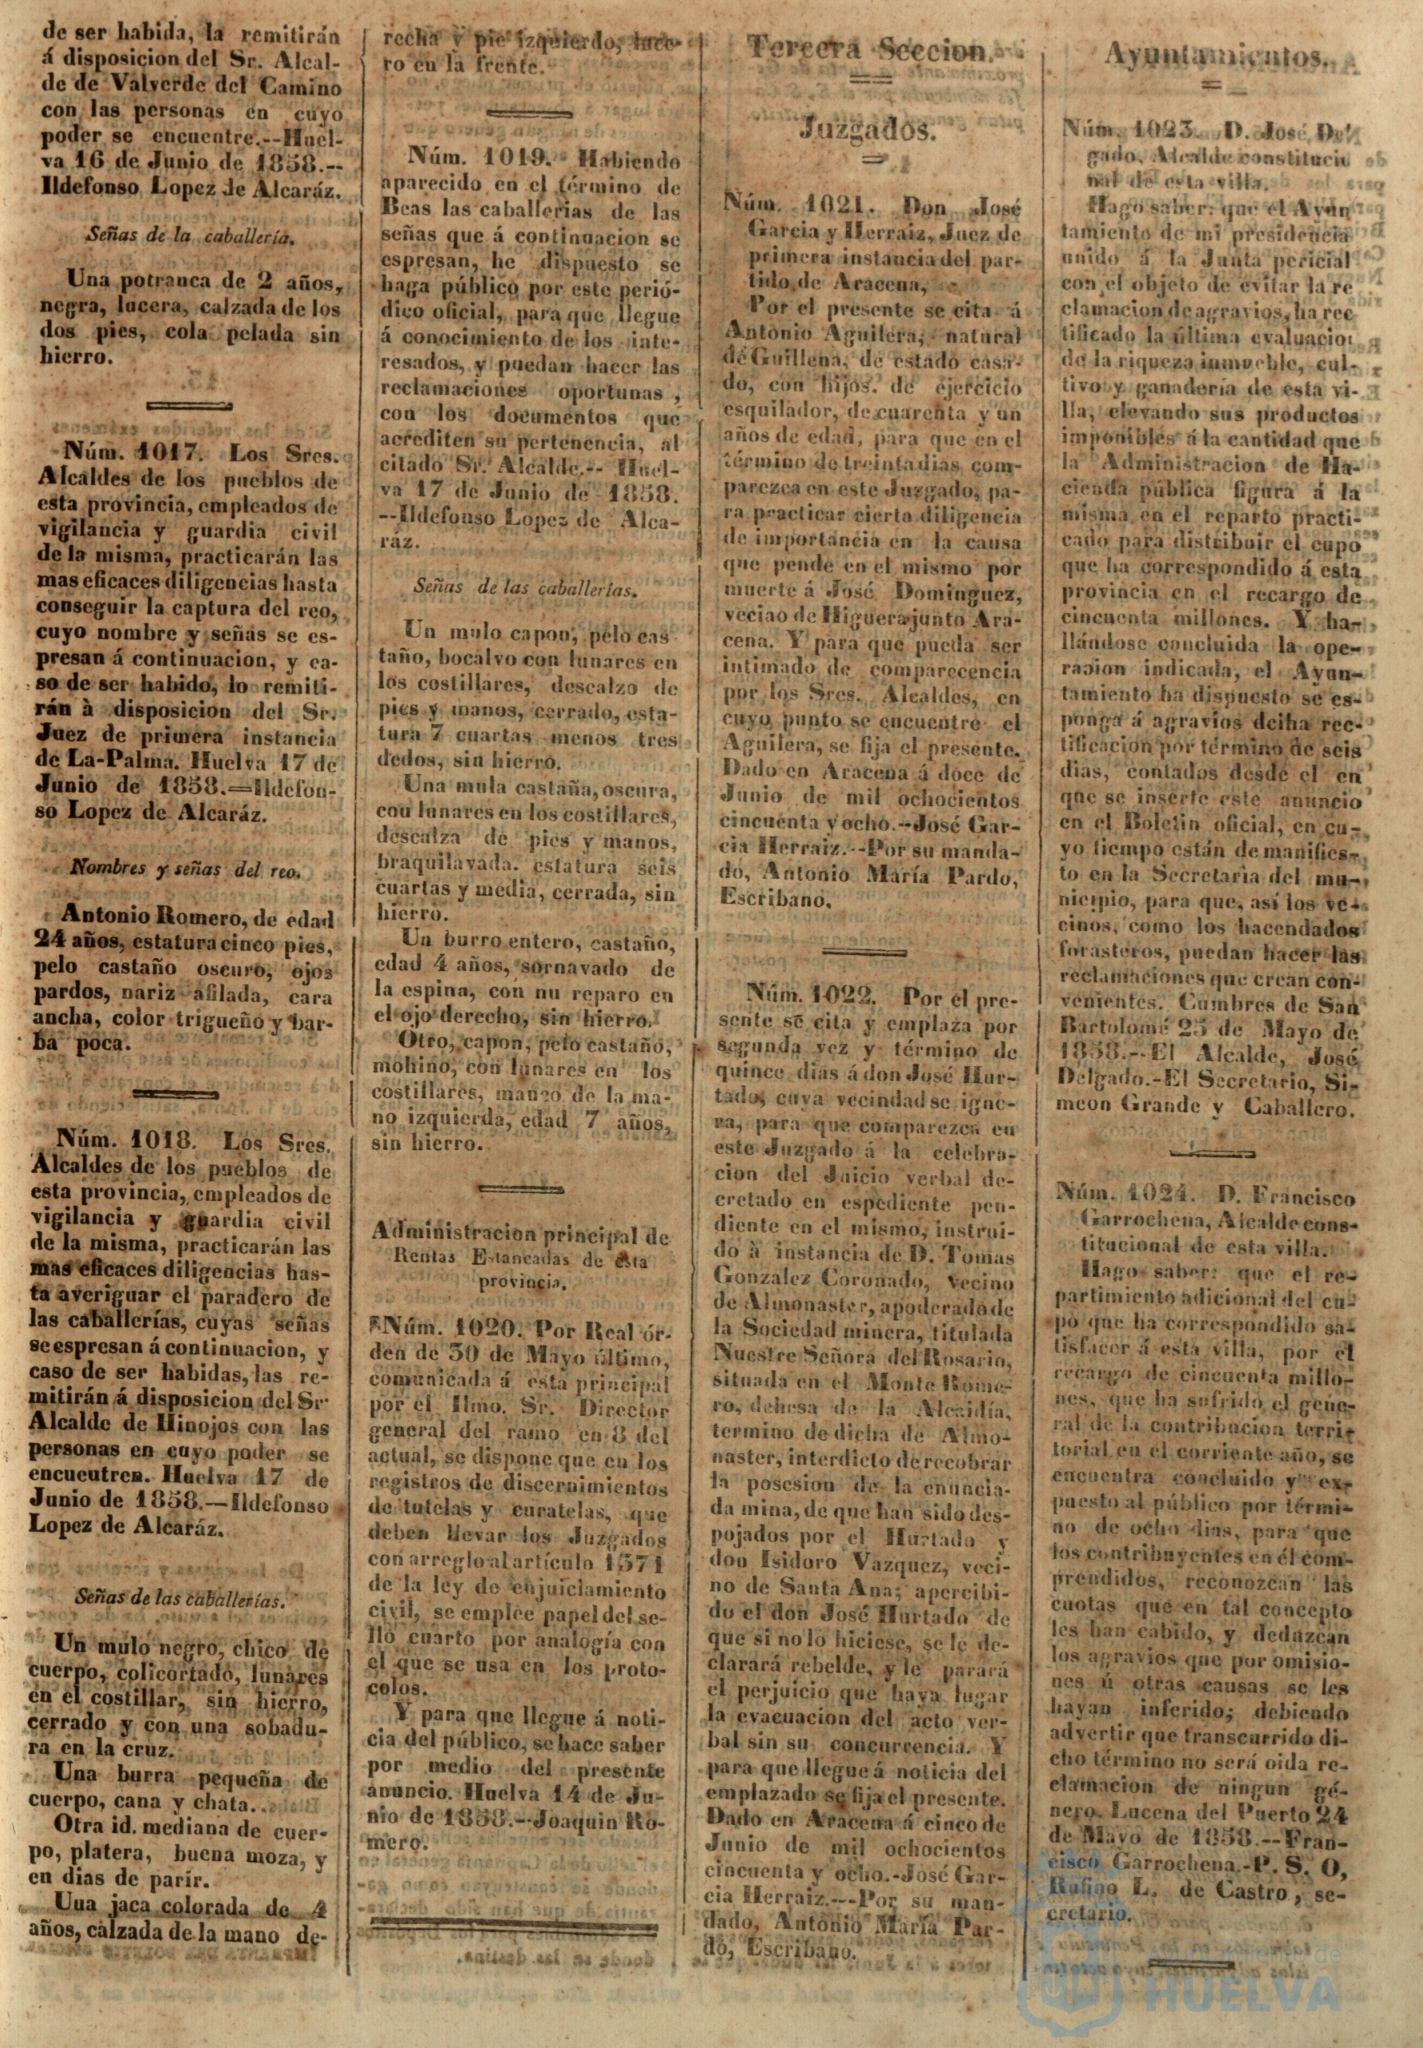 de ser habida, la remitirán
á disposicion del Sr. Alcal-
de de Valverde del Camino
con las personas en cuyo
poder se encuentre.--Huel-
va 16 de Junio de 1858.--
Ildefonso Lopez de Alcaráz.
Señas de la caballería.
Una potranca de 2 años,
negra, lucera, calzada de los
dos pies, cola pelada sin
hierro.
Núm. 1017. Los Sres.
Alcaldes de los pueblos de
esta provincia, empleados de
vigilancia y guardia civil
de la misma, practicarán las
mas eficaces diligencias hasta
conseguir la captura del reo,
cuyo nombre y señas se es-
presan á continuacion, y ca-
so de ser habido, lo remiti-
rán à disposicion del Sr.
Juez de primera instancia
de La-Palma. Huelva 17 de
Junio de 1858.=Ildefon-
so Lopez de Alcaráz.
Nombres y señas del reo.
Antonio Romero, de edad
24 años, estatura cinco pies,
pelo castaño oscuro, ojos
pardos, nariz afilada, cara
ancha, color trigueño y bar-
ba poca.
Núm. 1018. Los Sres.
Alcaldes de los pueblos de
esta provincia, empleados de
vigilancia y guardia civil
de la misma, practicarán las
mas eficaces diligencias has-
ta averiguar el paradero de
las caballerías, cuyas señas
se espresan á continuacion, y
caso de ser habidas, las re-
mitirán á disposicion del Sr
Alcalde de Hinojos con las
personas en cuyo poder se
encuentren. Huelva 17 de
Junio de 1858.—Ildefonso
Lopez de Alcaráz.
Señas de las caballerías.
Un mulo negro, chico de
cuerpo, colicortado, lunares
en el costillar, sin hierro,
cerrado y con una sobadu-
ra en la cruz.
Una burra pequeña de
cuerpo, cana y chata.
Otra id. mediana de cuer-
po, platera, buena moza, y
en dias de parir.
Una jaca colorada de 4
años, calzada de la mano de-
recha y pie izquierdo, luce-
ro en la frente.
Núm. 1019. Habiendo
aparecido en el término de
Beas las caballerias de las
señas que á continuacion se
espresan, he dispuesto se
haga público por este perió-
dico oficial, para que llegue
á conocimiento de los inte-
resados, y puedan hacer las
reclamaciones oportunas,
con los documentos que
acrediten su pertenencia, al
citado Sr. Alcalde.-- Huel-
va 17 de Junio de 1858.
--Ildefonso Lopez de Alca-
ráz.
Señas de las caballerías.
Un mulo capon, pelo cas
taño, bocalvo con lunares en
los costillares, descalzo de
pies y manos, cerrado, esta-
tura 7 cuartas menos tres
dedos, sin hierro.
Una mula castaña, oscura,
con lunares en los costillares,
descalza de pies y manos,
braquilavada. estatura seis
cuartas y media, cerrada, sin
hierro.
Un burro entero, castaño,
edad 4 años, sornavado de
la espina, con nu reparo en
el ojo derecho, sin hierro.
Otro, capon, pelo castaño,
mohino, con lunares en los
costillares, manco de la ma-
no izquierda, edad 7 años,
sin hierro.
Administracion principal de
Rentas Estancadas de esta
provincia.
Núm. 1020. Por Real ór-
den de 30 de Mayo último,
comunicada á esta principal
por el Ilmo. Sr. Director
general del ramo en 8 del
actual, se dispone que en los
registros de discernimientos
de tutelas y curatelas, que
deben llevar los Juzgados
con arreglo al artículo 1371
de la ley de enjuiciamiento
civil, se emplée papel del se-
llo cuarto por analogía con
el que se usa en los proto-
colos.
Y para que llegue á noti-
cia del público, se hace saber
por medio del presente
anuncio. Huelva 14 de Ju-
nio de 1858.--Joaquin Ro-
mero.
Tercera Seccion.
Juzgados.
Núm. 1021. Don José
Garcia y Herraiz, Juez de
primera instancia del par-
tido de Aracena,
Por el presente se cita á
Antonio Aguilera, natural
de Guillena, de estado casa-
do, con hijos. de ejercicio
esquilador, de cuarenta y un
años de edad, para que en el
término de treinta dias com-
parezca en este Juzgado, pa-
ra practicar cierta diligencia
de importancia en la causa
que pende en el mismo por
muerte á José Dominguez,
vecino de Higuera junto Ara-
cena. Y para que pueda ser
intimado de comparecencia
por los Sres. Alcaldes, en
cuyo punto se encuentre el
Aguilera, se fija el presente.
Dado en Aracena á doce de
Junio de mil ochocientos
cincuenta y ocho.--José Gar-
cia Herraiz.--Por su manda-
do, Antonio María Pardo,
Escribano.
Núm. 1022. Por el pre-
sente se cita y emplaza por
segunda vez y término de
quince dias á don José Hur-
tado, cuya vecindad se igno-
ra, para que comparezca en
este Juzgado á la celebra-
cion del Juicio verbal de-
cretado en espediente pen-
diente en el mismo, instrui-
do à instancia de D. Tomas
Gonzalez Coronado, vecino
de Almonaster, apoderado de
la Sociedad minera, titulada
Nuestre Señora del Rosario,
situada en el Monte Rome-
ro, dehesa de la Alcaidía,
termino de dicha de Almo-
naster, interdicto de recobrar
la posesion de la enuncia-
da mina, de que han sido des-
pojados por el Hurtado y
don Isidoro Vazquez, veci-
no de Santa Ana; apercibi-
do el don José Hurtado de
que si no lo hiciese, se le de-
clarará rebelde, y le parará
el perjuicio que haya lugar
la evacuacion del acto ver-
bal sin su concurrencia. Y
para que llegue á noticia del
emplazado se fija el presente.
Dado en Aracena á cinco de
Junio de mil ochocientos
cincuenta y ocho.-José Gar-
cia Herraiz.---Por su man-
dado, Antonio María Par-
do, Escribano.
Ayuntamientos.
Núm. 1023. D. José Del
gado, Alcalde constitucio
nal de esta villa.
Hago saber: que el Ayun
tamiento de mi presidencia
unido á la Junta pericial
con el objeto de evitar la re
clamacion de agravios, ha rec
tificado la última evaluacion
de la riqueza inmueble, cul-
tivo y ganadería de esta vi-
lla, elevando sus productos
imponibles á la cantidad que
la Administracion de Ha-
cienda pública figura á la
misma en el reparto practi-
cado para distribuir el cupo
que ha correspondido á esta
provincia en el recargo de
cincuenta millones. Y ha-
llándose concluida la ope-
racion indicada, el Ayun-
tamiento ha dispuesto se es-
ponga á agravios dciha rec-
tificacion por término de seis
dias, contados desde el en
que se inserte este anuncio
en el Boletin oficial, en cu-
yo tiempo están de manifies-
to en la Secretaria del mu-
nicipio, para que, así los ve-
cinos, como los hacendados
forasteros, puedan hacer las
reclamaciones que crean con-
venientes. Cumbres de San
Bartolomé 25 de Mayo de
1858.--El Alcalde, José
Delgado.-El Secretario, Si-
meon Grande y Caballero.
Núm. 1024. D. Francisco
Garrochena, Alcalde cons-
titucional de esta villa.
Hago saber: que el re-
partimiento adicional del cu-
po que ha correspondido sa-
tisfacer á esta villa, por el
recargo de cincuenta millo-
nes, que ha sufrido el gene-
ral de la contribucion terri-
torial en el corriente año, se
encuentra concluido y ex-
puesto al público por térmi-
no de ocho dias, para que
los contribuyentes en él com-
prendidos, reconozcan las
cuotas que en tal concepto
les han cabido, y deduzcan
los agravios que por omisio-
nes ú otras causas se les
hayan inferido; debiendo
advertir que transcurrido di-
cho término no será oida re-
clamacion de ningun gé-
nero. Lucena del Puerto 24
de Mayo de 1858.--Fran-
cisco Garrochena.-P. S. O,
Rufino L. de Castro, se-
cretario.
HUELVA